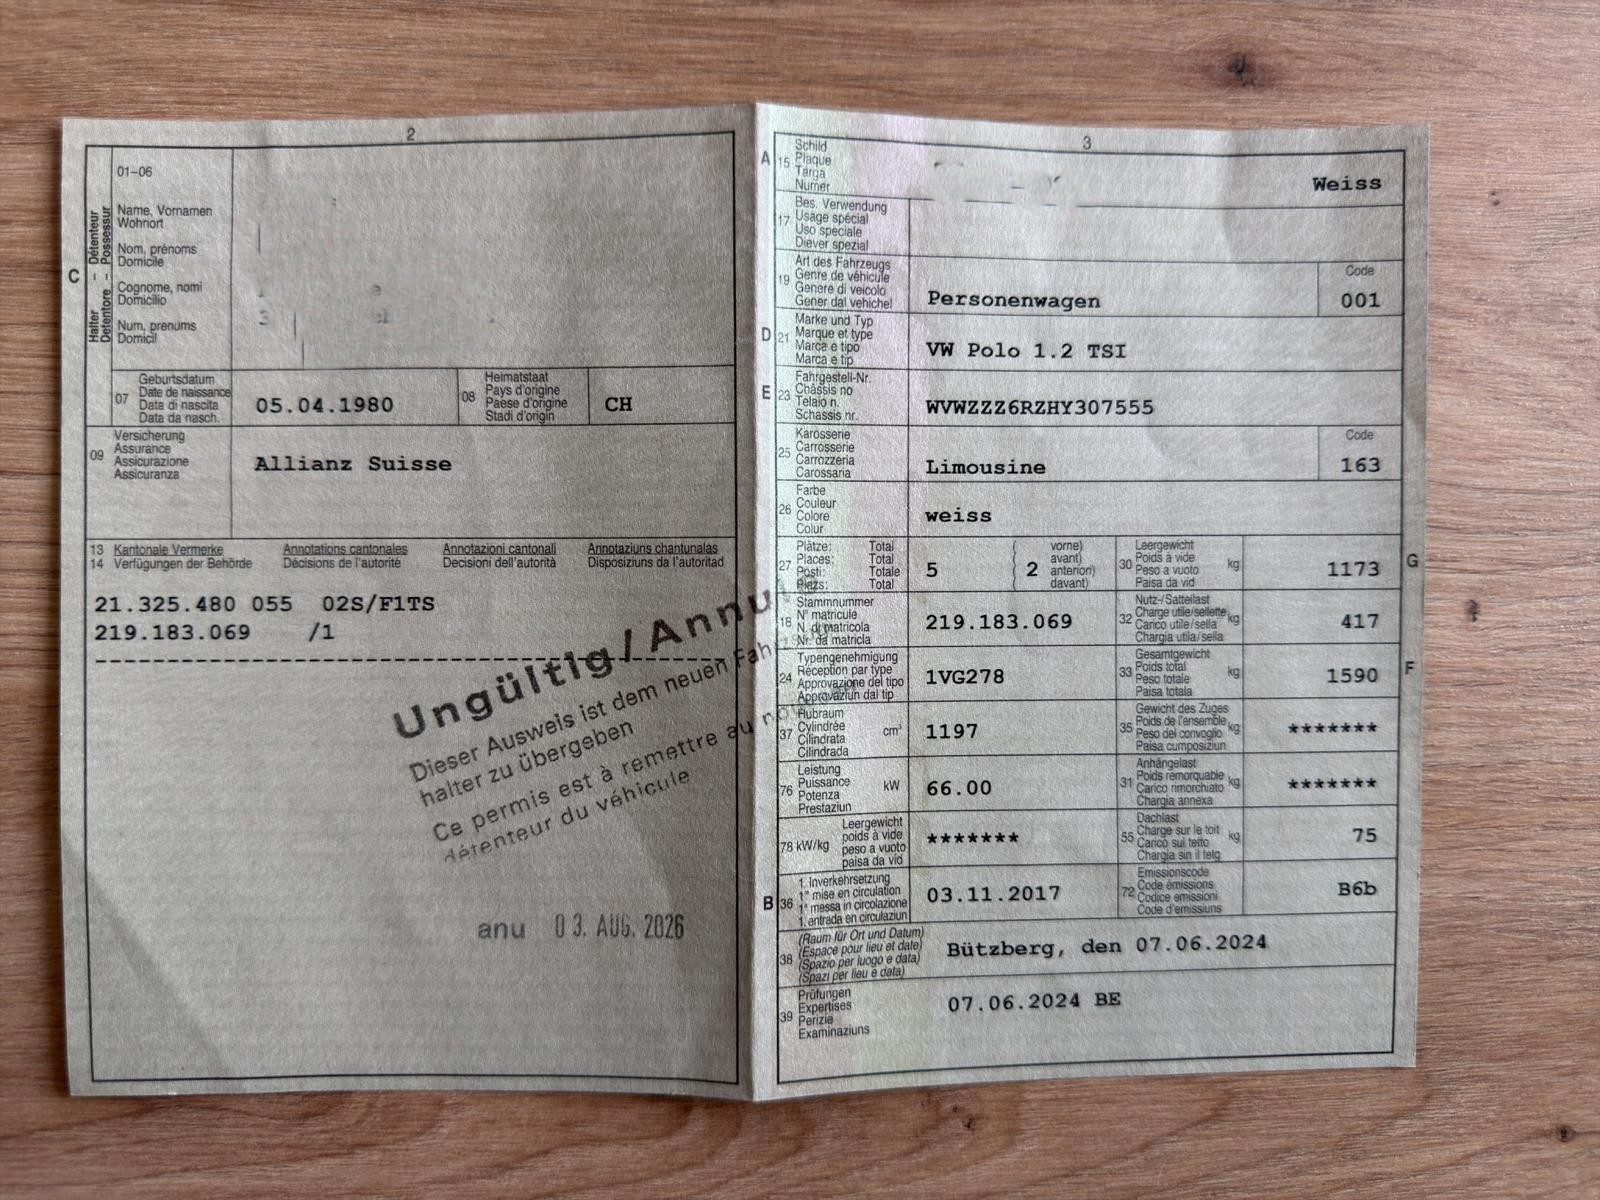 2
01-06
Halter - Détenteur
Detentore - Possessur
C
Name, Vornamen
Wohnort
Nom, prénoms
Domicile
Cognome, nomi
Domicilio
Num, prenums
Domicil
07
Geburtsdatum
Date de naissance
Data di nascita
Data da nasch.
05.04.1980
08
Heimatstaat
Pays d'origine
Paese d'origine
Stadi d'origin
CH
09
Versicherung
Assurance
Assicurazione
Assicuranza
Allianz Suisse
13 Kantonale Vermerke Annotations cantonales Annotazioni cantonali Annotaziuns chantunalas
14 Verfügungen der Behörde Décisions de l'autorité Decisioni dell'autorità Disposiziuns da l'autoritad
21.325.480 055 02S/F1TS
219.183.069 /1
Ungültig/Annu
Dieser Ausweis ist dem neuen Fahr
halter zu übergeben
Ce permis est à remettre au no
détenteur du véhicule
anu 03. AUG. 2026
3
A 15
Schild
Plaque
Targa
Numer
Weiss
17
Bes. Verwendung
Usage spécial
Uso speciale
Diever spezial
19
Art des Fahrzeugs
Genre de véhicule
Genere di veicolo
Gener dal vehichel
Personenwagen
Code
001
D 21
Marke und Typ
Marque et type
Marca e tipo
Marca e tip
VW Polo 1.2 TSI
E 23
Fahrgestell-Nr.
Châssis no
Telaio n.
Schassis nr.
WVWZZZ6RZHY307555
25
Karosserie
Carrosserie
Carrozzeria
Carossaria
Limousine
Code
163
26
Farbe
Couleur
Colore
Colur
weiss
27
Plätze: Total
Places: Total
Posti: Totale
Plazs: Total
5
2
vorne)
avant)
anteriori)
davant)
30
Leergewicht
Poids à vide
Peso a vuoto
Paisa da vid
kg
1173
G
18
Stammnummer
N° matricule
N. di matricola
Nr. da matricla
219.183.069
32
Nutz-/Sattellast
Charge utile/sellette
Carico utile/sella
Chargia utila/sella
kg
417
24
Typengenehmigung
Réception par type
Approvazione del tipo
Approvaziun dal tip
1VG278
33
Gesamtgewicht
Poids total
Peso totale
Paisa totala
kg
1590
F
37
Hubraum
Cylindrée
Cilindrata
Cilindrada
cm³
1197
35
Gewicht des Zuges
Poids de l'ensemble
Peso del convoglio
Paisa cumposiziun
kg
*******
76
Leistung
Puissance
Potenza
Prestaziun
kW
66.00
31
Anhängelast
Poids remorquable
Carico rimorchiato
Chargia annexa
kg
*******
78 kW/kg
Leergewicht
poids à vide
peso a vuoto
paisa da vid
*******
55
Dachlast
Charge sur le toit
Carico sul tetto
Chargia sin il tetg
kg
75
B 36
1. Inverkehrsetzung
1re mise en circulation
1a messa in circolazione
1. entrada en circulaziun
03.11.2017
72
Emissionscode
Code émissions
Codice emissioni
Code d'emissiuns
B6b
38
(Raum für Ort und Datum)
(Espace pour lieu et date)
(Spazio per luogo e data)
(Spazi per lieu e data)
Bützberg, den 07.06.2024
39
Prüfungen
Expertises
Perizie
Examinaziuns
07.06.2024 BE